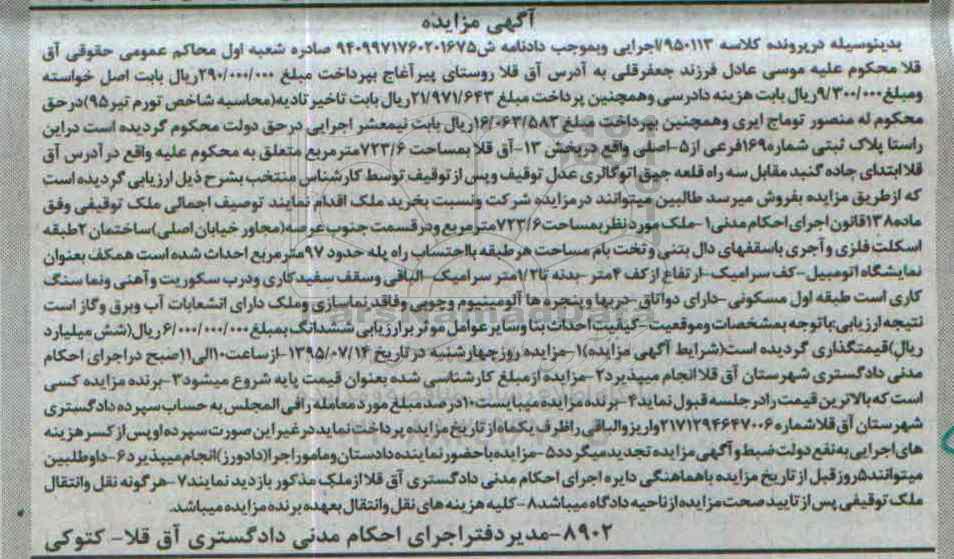 آگهی مزایده
بدینوسیله درپرونده کلاسه ۹۵۰۱۱۳/اجرایی وبموجب دادنامه ش۹۴۰۹۹۷۱۷۶۰۲۰۱۶۷۵ صادره شعبه اول محاکم عمومی حقوقی آق
قلا محکوم علیه موسی عادل فرزند جعفرقلی به آدرس آق قلا روستای پیرآغاج بپرداخت مبلغ ۲۹۰/۰۰۰/۰۰۰ریال بابت اصل خواسته
ومبلغ۹/۳۰۰/۰۰۰ریال بابت هزینه دادرسی وهمچنین پرداخت مبلغ ۲۱/۹۷۱/۶۴۳ریال بابت تاخیر تادیه(محاسبه شاخص تورم تیر۹۵)درحق
محکوم له منصور توماج ایری وهمچنین بپرداخت مبلغ ۱۶/۰۶۳/۵۸۲ریال بابت نیمعشر اجرایی درحق دولت محکوم گردیده است دراین
راستا پلاک ثبتی شماره۱۶۹۰فرعی از۵-اصلی واقع دربخش ۱۳-آق قلا بمساحت ۷۲۳/۶مترمربع متعلق به محکوم علیه واقع درآدرس آق
قلاابتدای جاده گنبد مقابل سه راه قلعه جیق اتوگالری عدل توقیف وپس از توقیف توسط کارشناس منتخب بشرح ذیل ارزیابی گردیده است
که ازطریق مزایده بفروش میرسد طالبین میتوانند درمزایده شرکت ونسبت بخرید ملک اقدام نمایند توصیف اجمالی ملک توقیفی وفق
ماده۱۳۸قانون اجرای احکام مدنی۱-ملک مورد نظر بمساحت۷۲۳/۶مترمربع ودرقسمت جنوب عرصه(مجاور خیابان اصلی)ساختمان ۲طبقه
اسکلت فلزی وآجری باسقفهای دال بتنی وتخت بام مساحت هرطبقه بااحتساب راه پله حدود ۹۷مترمربع احداث شده است همکف بعنوان
نمایشگاه اتومبیل-کف سرامیک-ارتفاع ازکف ۴متر-بدنه تا۱/۲متر سرامیک-الباقی وسقف سفیدکاری ودرب سکوریت وآهنی ونما سنگ
کاری است طبقه اول مسکونی-دارای دواتاق-دربها وپنجره ها آلومینیوم وچوبی وفاقد نماسازی وملک دارای انشعابات آب وبرق وگاز است
نتیجه ارزیابی:باتوجه بمشخصات وموقعیت-کیفیت احداث بنا وسایرعوامل موثر برارزیابی ششدانگ بمبلغ ۶/۰۰۰/۰۰۰/۰۰۰ریال(شش میلیارد
ریال)قیمتگذاری گردیده است(شرایط آگهی مزایده)۱-مزایده روزچهارشنبه درتاریخ ۱۳۹۵/۰۷/۱۴-ازساعت۱۰الی۱۱صبح دراجرای احکام
مدنی دادگستری شهرستان آق قلاانجام میپذیرد۲-مزایده ازمبلغ کارشناسی شده بعنوان قیمت پایه شروع میشود۳-برنده مزایده کسی
است که بالاترین قیمت رادرجلسه قبول نماید۴-برنده مزایده میبایست۱۰درصد مبلغ مورد معامله رافی المجلس به حساب سپرده دادگستری
شهرستان آق قلاشماره ۲۱۷۱۲۹۴۶۴۷۰۰۶واریز والباقی راظرف یکماه از تاریخ مزایده پرداخت نماید درغیراین صورت سپرده اوپس از کسر هزینه
های اجرایی به نفع دولت ضبط وآگهی مزایده تجدید میگردد۵-مزایده باحضور نماینده دادستان ومامور اجرا(دادورز)انجام میپذیرد۶-داوطلبین
میتوانند۵روز قبل از تاریخ مزایده باهماهنگی دایره اجرای احکام مدنی دادگستری آق قلاازملک مذکور بازدید نمایند۷-هرگونه نقل وانتقال
ملک توقیفی پس از تایید صحت مزایده ازناحیه دادگاه میباشد۸-کلیه هزینه های نقل وانتقال بعهده برنده مزایده میباشد.
۸۹۰۲-مدیردفتراجرای احکام مدنی دادگستری آق قلا- کتوکی